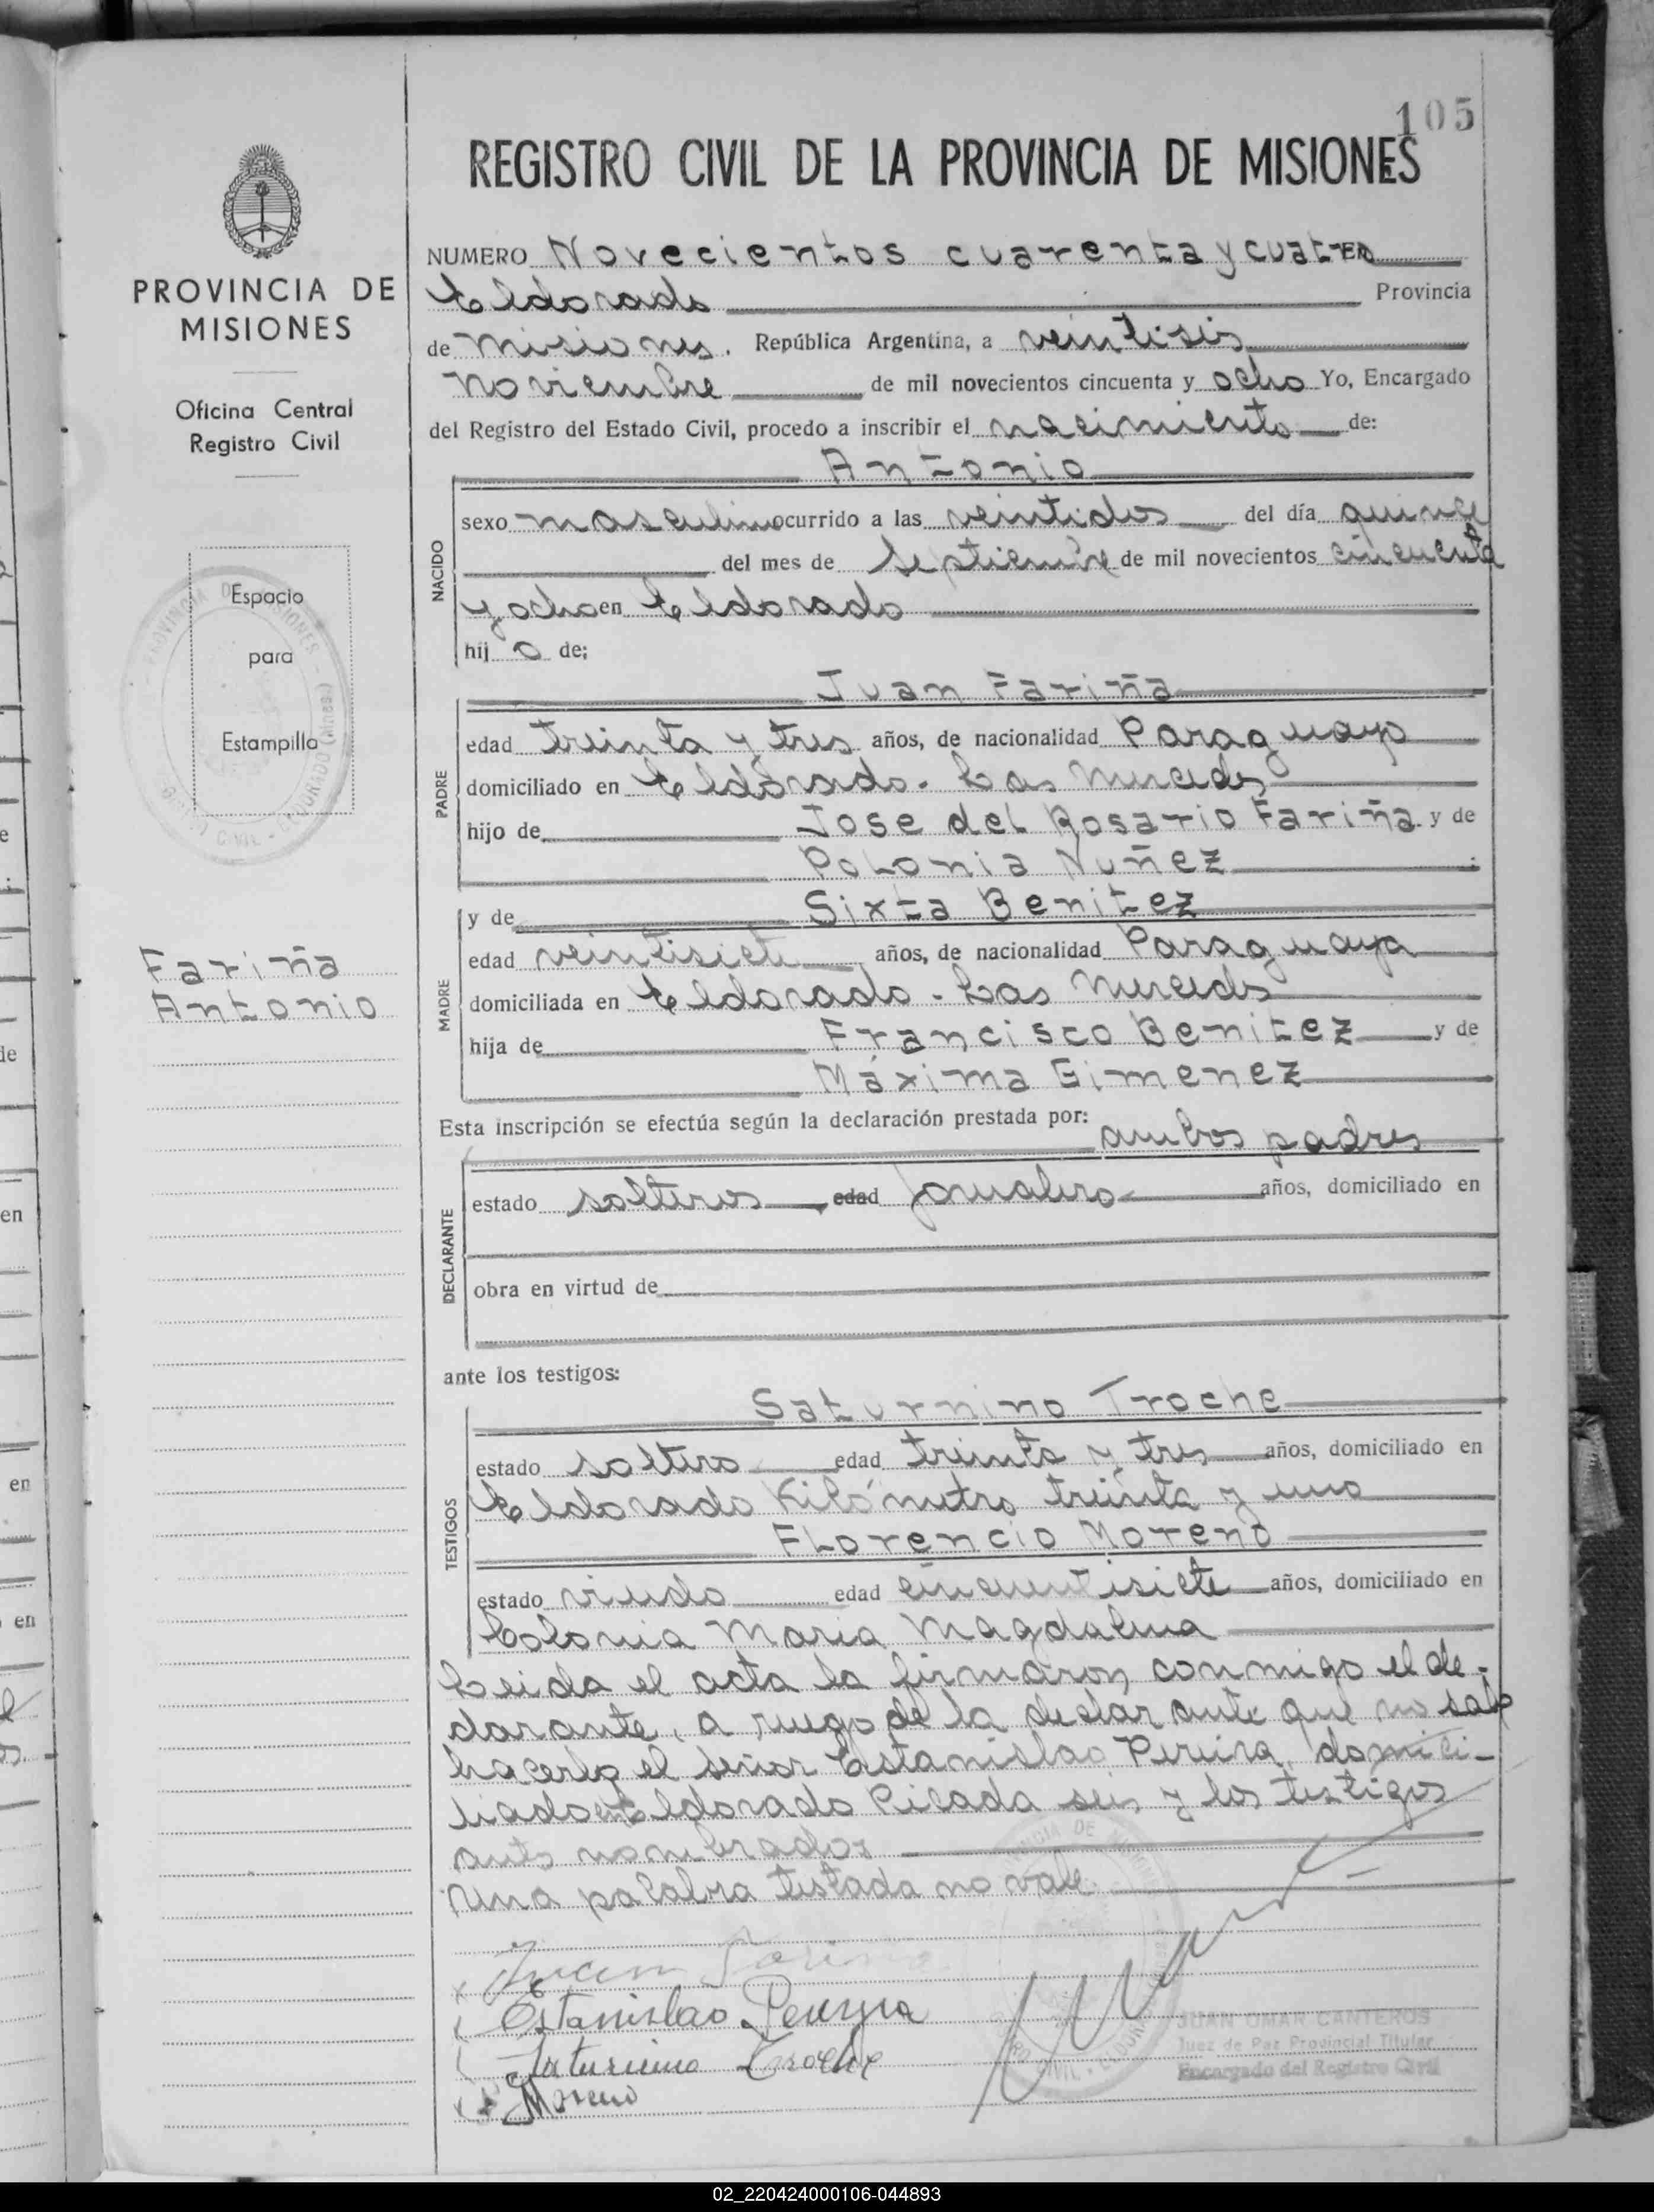 105
REGISTRO CIVIL DE LA PROVINCIA DE MISIONES
PROVINCIA DE
MISIONES
Oficina Central
Registro Civil
Espacio
para
Estampilla
Fariña
Antonio
NUMERO Novecientos cuarenta y cuatro EN
Eldorado Provincia
de Misiones, República Argentina, a veintiseis
Noviembre de mil novecientos cincuenta y ocho Yo, Encargado
del Registro del Estado Civil, procedo a inscribir el nacimiento de:
NACIDO
Antonio
sexo masculino ocurrido a las veintidos del día quince
del mes de Septiembre de mil novecientos cincuenta
y ocho en Eldorado
hij o de:
PADRE
Juan Fariña
edad treinta y tres años, de nacionalidad Paraguayo
domiciliado en Eldorado - Las Mercedes
hijo de Jose del Rosario Fariña y de
Polonia Nuñez
MADRE
y de Sixta Benitez
edad veintisiete años, de nacionalidad Paraguaya
domiciliada en Eldorado - Las Mercedes
hija de Francisco Benitez y de
Máxima Gimenez
Esta inscripción se efectúa según la declaración prestada por: ambos padres
DECLARANTE
estado solteros, edad Jornalero años, domiciliado en
obra en virtud de
ante los testigos:
TESTIGOS
Saturnino Troche
estado soltero edad treinta y tres años, domiciliado en
Eldorado Kilómetro treinta y uno
Florencio Moreno
estado viudo edad cincuentisiete años, domiciliado en
Colonia Maria Magdalena
Leida el acta la firmaron conmigo el de-
clarante, a ruego de la declarante que no sabe
hacerlo el señor Estanislao Pereira, domici-
liado en Eldorado Picada seis y los testigos
antes nombrados
Una palabra testada no vale.
Juan Fariña
Estanislao Pereyra
Saturnino Troche
Moreno
JUAN OMAR CANTEROS
Juez de Paz Provincial Titular
Encargado del Registro Civil
02_220424000106-044893